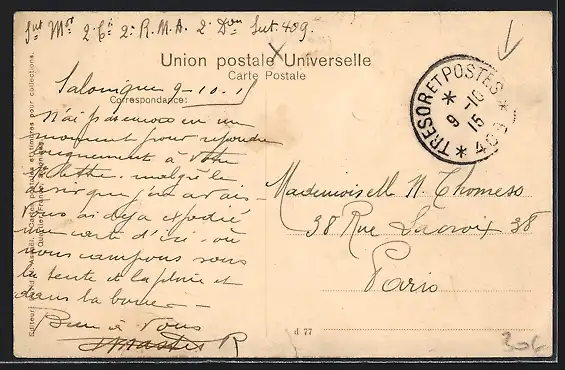 2e R.M.A. 2e Don Sect. 409.
Union postale Universelle
Carte Postale
Salonique 9-10-15
Correspondance:
N'ai pas encore eu un
moment pour répondre
longuement à votre
malgré le
désir que j'en avais.
Vous ai déjà expédié
une carte d'ici, où
nous campons sous
la tente et la pluie et
dans la boue —
Bien à vous
R
TRESOR ET POSTES
* 409 *
9 -10
15
Mademoiselle N. Thomess
38 Rue Lacroix 38
Paris
d 77
306